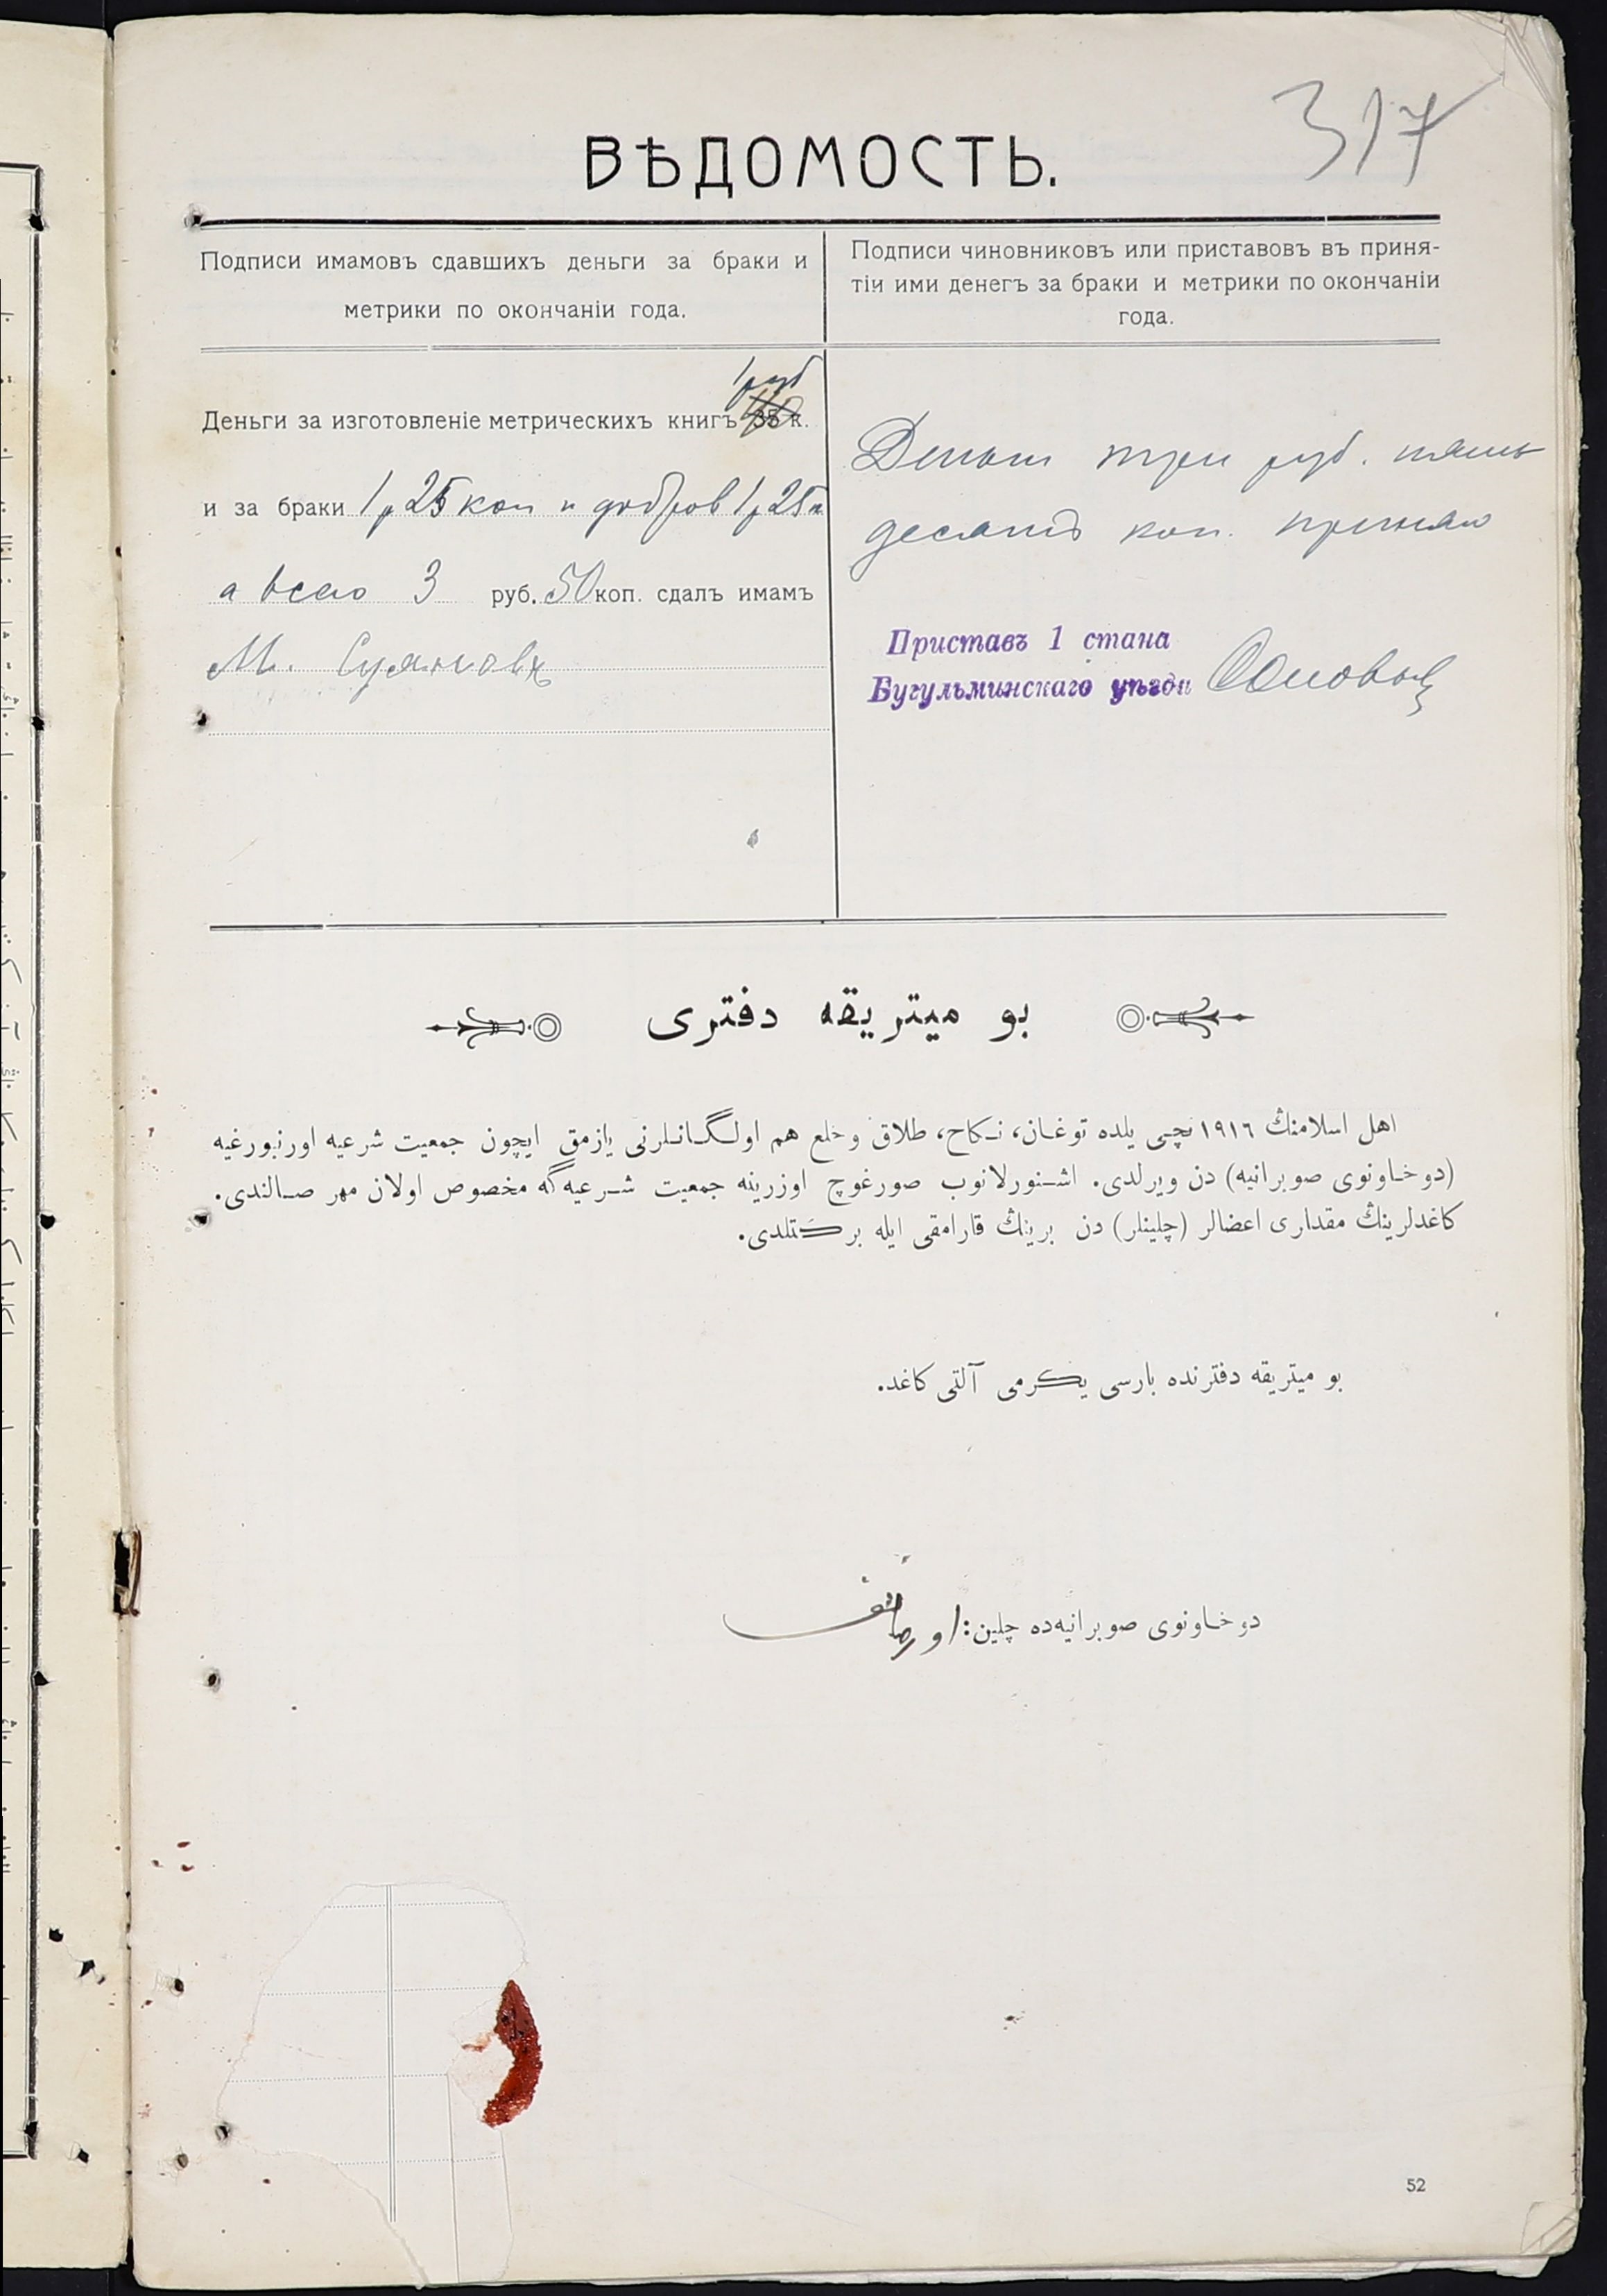 317
ВѢДОМОСТЬ.
Подписи имамовъ сдавшихъ деньги за браки и
метрики по окончаніи года.
Подписи чиновниковъ или приставовъ въ приня-
тіи ими денегъ за браки и метрики по окончаніи
года.
1 руб
Деньги за изготовленіе метрическихъ книгъ 35 к.
и за браки 1 р 25 коп и добров 1 р 25 к
а всего 3 руб. 50 коп. сдалъ имамъ
М.
Деньги три руб. пять
десятъ коп. принялъ
Приставъ 1 стана
Бугульминскаго уѣзда
بو ميتريقه دفترى
اهل اسلامنڭ ١٩١٦ نچى يلده توغان، نكاح، طلاق وخلع هم اولگانلرنى يازمق ايچون جمعيت شرعيه اورنبورغيه
(دوخاونوى صوبرانيه) دن ويرلدى. اشنورلانوب صورغوچ اوزرينه جمعيت شرعيه‌گه مخصوص اولان مهر صالندى.
كاغدلرينڭ مقدارى اعضالر (چلينلر) دن برينڭ قارامقى ايله بركتلدى.
بو ميتريقه دفترنده بارسى يكرمى آلتى كاغد.
دوخاونوى صوبرانيه‌ده چلين:
52